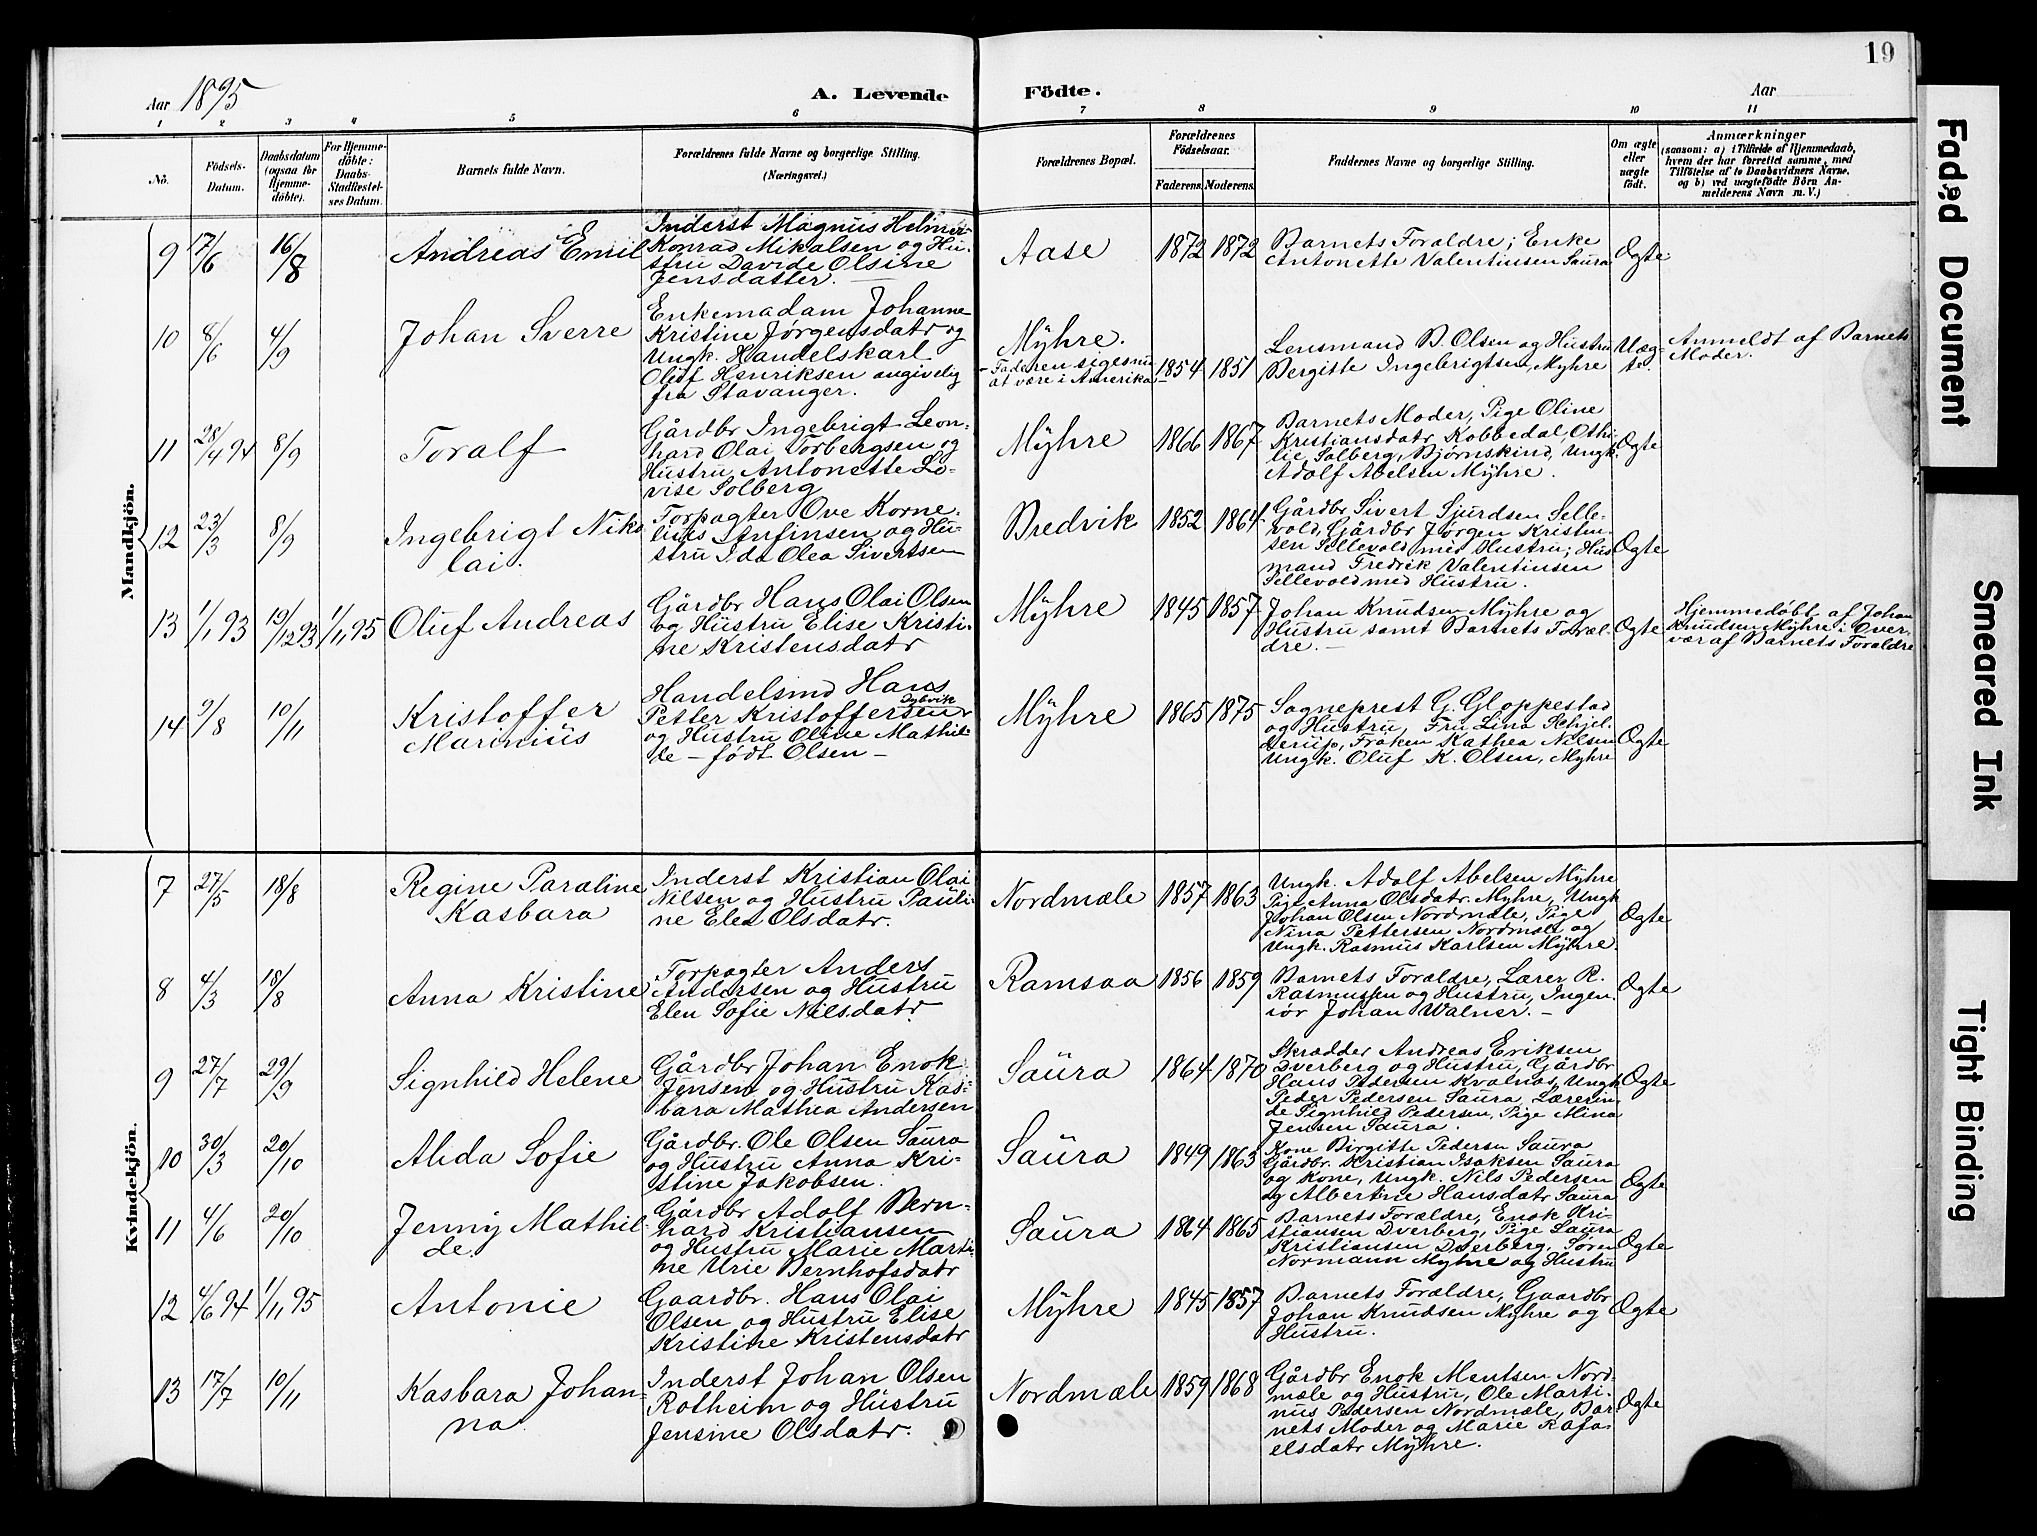 19
Aar 1895
A. Levende Födte.
Aar
1 2 3 4 5 6 7 8 9 10 11
No.
Födsels-Datum.
Daabsdatum (ogsaa for Hjemmedöbte).
For Hjemmedöbte: Daabs-Stadfæstelses Datum.
Barnets fulde Navn.
Forældrenes fulde Navne og borgerlige Stilling. (Næringsvei.)
Forældrenes Bopæl.
Forældrenes Födselsaar.
Faderens. Moderens.
Faddernes Navne og borgerlige Stilling.
Om ægte eller uægte födt.
Anmærkninger
(saasom: a) i Tilfælde af Hjemmedaab, hvem der har forrettet samme, med Tilföielse af to Daabsvidners Navne, og b) ved uægtefödte Börn Anmelderens Navn m. V.)
Mandkjön.
9 17/6 16/8 Andreas Emil
Inderst Magnus Helmer
Konrad Mikalsen og Hu-
stru Davide Olsine
Jensdatter. —
Aase 1872 1872
Barnets Foraldre; Enke
Antonette Valentinsen Saura
Ægte
10 8/6 4/9 Johan Sverre
Enkemadam Johanne
Kristine Jørgensdatr og
Ungk. Handelskarl
Oluf Henriksen angivelig
fra Stavanger.
Myhre.
- Faderen siges nu
at være i Amerika - 1854 1851
Lensmand B. Olsen og Hustru
Bergitte Ingebrigtsen, Myhre
Uæg-
te.
Anmeldt af Barnets
Moder.
11 28/4 94 8/9 Toralf
Gårdbr Ingebrigt Leon-
hard Olai Torbergsen og
Hustru Antonette Lo-
vise Solberg
Myhre 1866 1867
Barnets Moder, Pige Oline
Kristiansdatr Kobbedal, Othi
lie Solberg, Bjørnskind, Ungk.
Adolf Abelsen Myhre.
Ægte
12 23/3 8/9 Ingebrigt Niko
lai.
Forpagter Ove Korne-
lius Anfinsen og Hu-
stru Ida Olea Sivertsen
Bredvik 1852 1864
Gårdbr Sivert Sjurdsen Selle-
vold, Gårdbr Jørgen Kristen-
sen Sellevold med Hustru; Hus
mand Fredrik Valentinsen
Sellevold med Hustru.
Ægte
13 1/1 93 19/12 93 1/11 95 Oluf Andreas
Gårdbr Hans Olai Olsen
og Hustru Elise Kristi-
ne Kristensdatr
Myhre 1845 1857
Johan Knudsen Myhre og
Hustru samt Barnets Foræl-
dre. —
Ægte
Hjemmedøbt af Johan
Knudsen Myhre i Over-
vær af Barnets Foraldre
14 9/8 10/11 Kristoffer
Marinius
Handelsmd Hans
Petter Kristoffersen Dybvik
og Hustru Oline Mathil-
de – født Olsen –
Myhre 1865 1875
Sogneprest G. Gloppestad
og Hustru, Fru Lina Schjel-
derup, Frøken Kathea Nilsen
Ungk. Oluf K. Olsen, Myhre
Ægte
Kvindekjön.
7 27/5 18/8 Regine Paraline
Kasbara
Inderst Kristian Olai
Nilsen og Hustru Pauli-
ne Elea Olsdatr.
Nordmæle 1857 1863
Ungk. Adolf Abelsen Myhre
Pige Anna Olsdatr. Myhre, Ungk
Johan Olsen Nordmæle, Pige
Nina Pettersen Nordmæle og
Ungk. Rasmus Karlsen Myhre.
Ægte
8 4/3 18/8 Anna Kristine
Forpagter Anders
Andersen og Hustru
Elen Sofie Nilsdatr.
Ramsaa 1856 1859
Barnets Foraldre, Lærer R.
Rasmussen og Hustru, Ingen-
iør Johan Walner. —
Ægte
9 27/7 29/9 Signhild Helene
Gårdbr Johan Enok
Jensen og Hustru Kas-
bara Mathea Andersen
Saura 1864 1870
Skrædder Andreas Eriksen
Dverberg og Hustru, Gårdbr
Hans Pedersen Kvalnæs, Ungk
Peder Pedersen Saura, Lærerin
de Signhild Pedersen, Pige Mina
Jensen Saura.
Ægte
10 30/3 20/10 Alida Sofie
Gårdbr. Ole Olsen Saura
og Hustru Anna Kri-
stine Jakobsen.
Saura 1849 1863
Kone Birgitte Pedersen Saura
Gårdbr. Kristian Isaksen Saura
og Kone, Ungk. Nils Pedersen
og Albertine Hansdatr Saura
Ægte
11 4/6 20/10 Jenny Mathil-
de.
Gårdbr Adolf Bern-
hard Kristiansen
og Hustru Marie Marti-
ne Urie Bernhofsdatr
Saura 1864 1865
Barnets Forældre, Enok Kri-
stiansen Dverberg, Pige Laura
Kristiansen Dverberg. Søren
Normann Myhre og Hustru
Ægte
12 4/6 94 1/11 95 Antonie
Gaardbr. Hans Olai
Olsen og Hustru Elise
Kristine Kristensdatr
Myhre 1845 1857
Barnets Forældre, Gaardbr
Johan Knudsen Myhre og
Hustru.
Ægte
13 17/7 10/11 Kasbara Johan-
na
Inderst Johan Olsen
Rotheim og Hustru
Jensine Olsdatr.
Nordmæle 1859 1868
Gårdbr Enok Mentsen Nord-
mæle og Hustru, Ole Marti-
nus Pedersen Nordmæle, Bar-
nets Moder og Marie Rafa-
elsdatr Myhre.
Ægte
Faded Document
Smeared Ink
Tight Binding